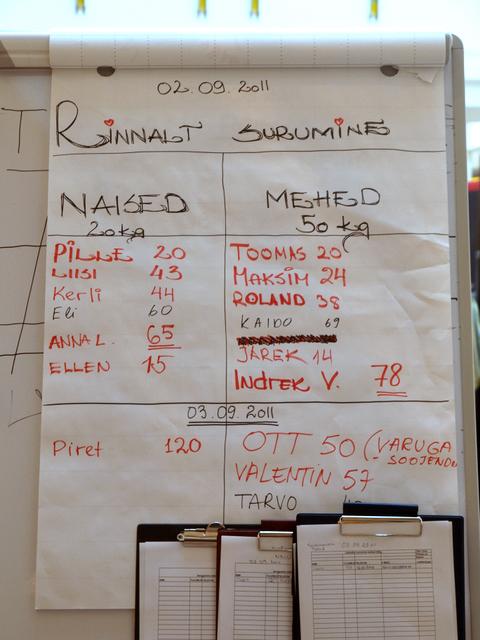 02.09.2011
RINNALT SURUMINE
NAISED
20kg
PILLE 20
LIISI 43
Kerli 44
Eli 60
ANNA L. 65
ELLEN 15
MEHED
50 kg
TOOMAS 20
MAKSIM 24
ROLAND 38
KAIDO 69
JAREK 14
INDREK V. 78
03.09.2011
Piret 120
OTT 50 (VARUGA
SOOJENDU
VALENTIN 57
TARVO